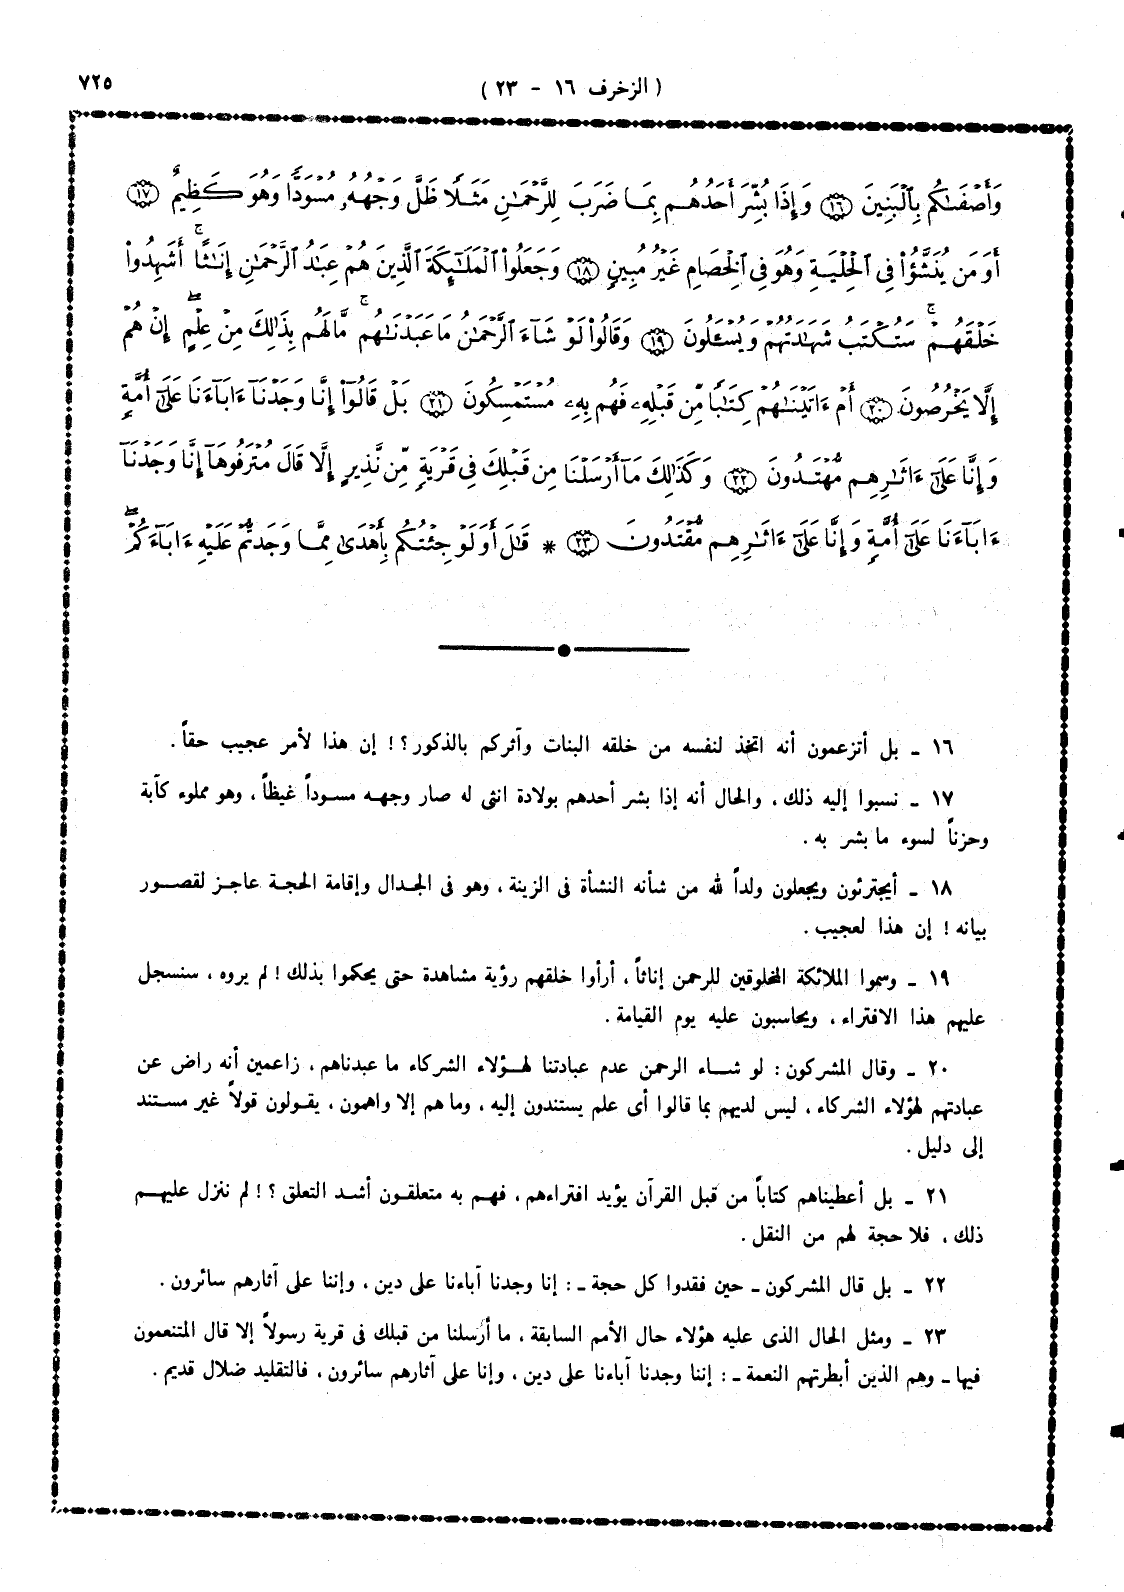 ( الزخرف ١٦ - ٢٣ )
٧٢٥
وَأَصْفَىٰكُم بِٱلْبَنِينَ ١٦ وَإِذَا بُشِّرَ أَحَدُهُم بِمَا ضَرَبَ لِلرَّحْمَٰنِ مَثَلًا ظَلَّ وَجْهُهُۥ مُسْوَدًّا وَهُوَ كَظِيمٌ ١٧
أَوَمَن يُنَشَّؤُا۟ فِى ٱلْحِلْيَةِ وَهُوَ فِى ٱلْخِصَامِ غَيْرُ مُبِينٍ ١٨ وَجَعَلُوا۟ ٱلْمَلَٰٓئِكَةَ ٱلَّذِينَ هُمْ عِبَٰدُ ٱلرَّحْمَٰنِ إِنَٰثًا ۚ أَشَهِدُوا۟
خَلْقَهُمْ ۚ سَتُكْتَبُ شَهَٰدَتُهُمْ وَيُسْـَٔلُونَ ١٩ وَقَالُوا۟ لَوْ شَآءَ ٱلرَّحْمَٰنُ مَا عَبَدْنَٰهُم ۗ مَّا لَهُم بِذَٰلِكَ مِنْ عِلْمٍ ۖ إِنْ هُمْ
إِلَّا يَخْرُصُونَ ٢٠ أَمْ ءَاتَيْنَٰهُمْ كِتَٰبًا مِّن قَبْلِهِۦ فَهُم بِهِۦ مُسْتَمْسِكُونَ ٢١ بَلْ قَالُوٓا۟ إِنَّا وَجَدْنَآ ءَابَآءَنَا عَلَىٰٓ أُمَّةٍ
وَإِنَّا عَلَىٰٓ ءَاثَٰرِهِم مُّهْتَدُونَ ٢٢ وَكَذَٰلِكَ مَآ أَرْسَلْنَا مِن قَبْلِكَ فِى قَرْيَةٍ مِّن نَّذِيرٍ إِلَّا قَالَ مُتْرَفُوهَآ إِنَّا وَجَدْنَآ
ءَابَآءَنَا عَلَىٰٓ أُمَّةٍ وَإِنَّا عَلَىٰٓ ءَاثَٰرِهِم مُّقْتَدُونَ ٢٣ * قَٰلَ أَوَلَوْ جِئْتُكُم بِأَهْدَىٰ مِمَّا وَجَدتُّمْ عَلَيْهِ ءَابَآءَكُمْ ۖ
١٦ ـ بل أتزعمون أنه اتخذ لنفسه من خلقه البنات وآثركم بالذكور ؟! إن هذا لأمر عجيب حقاً .
١٧ ـ نسبوا إليه ذلك ، والحال أنه إذا بشر أحدهم بولادة انثى له صار وجهه مسوداً غيظاً ، وهو مملوء كآبة
وحزناً لسوء ما بشر به .
١٨ ـ أيجترئون ويجعلون ولداً لله من شأنه النشأة فى الزينة ، وهو فى الجدال وإقامة الحجة عاجز لقصور
بيانه ! إن هذا لعجيب .
١٩ ـ وسموا الملائكة المخلوقين للرحمن إناثاً ، أرأوا خلقهم رؤية مشاهدة حتى يحكموا بذلك ! لم يروه ، سنسجل
عليهم هذا الافتراء ، ويحاسبون عليه يوم القيامة .
٢٠ ـ وقال المشركون : لو شاء الرحمن عدم عبادتنا لهؤلاء الشركاء ما عبدناهم ، زاعمين أنه راض عن
عبادتهم لهؤلاء الشركاء ، ليس لديهم بما قالوا أى علم يستندون إليه ، وما هم إلا واهمون ، يقولون قولاً غير مستند
إلى دليل .
٢١ ـ بل أعطيناهم كتاباً من قبل القرآن يؤيد افتراءهم ، فهم به متعلقون أشد التعلق ؟! لم ننزل عليهم
ذلك ، فلا حجة لهم من النقل .
٢٢ ـ بل قال المشركون ـ حين فقدوا كل حجة ـ : إنا وجدنا آباءنا على دين ، وإننا على آثارهم سائرون .
٢٣ ـ ومثل الحال الذى عليه هؤلاء حال الأمم السابقة ، ما أرسلنا من قبلك فى قرية رسولاً إلا قال المتنعمون
فيها ـ وهم الذين أبطرتهم النعمة ـ : إننا وجدنا آباءنا على دين ، وإنا على آثارهم سائرون ، فالتقليد ضلال قديم .